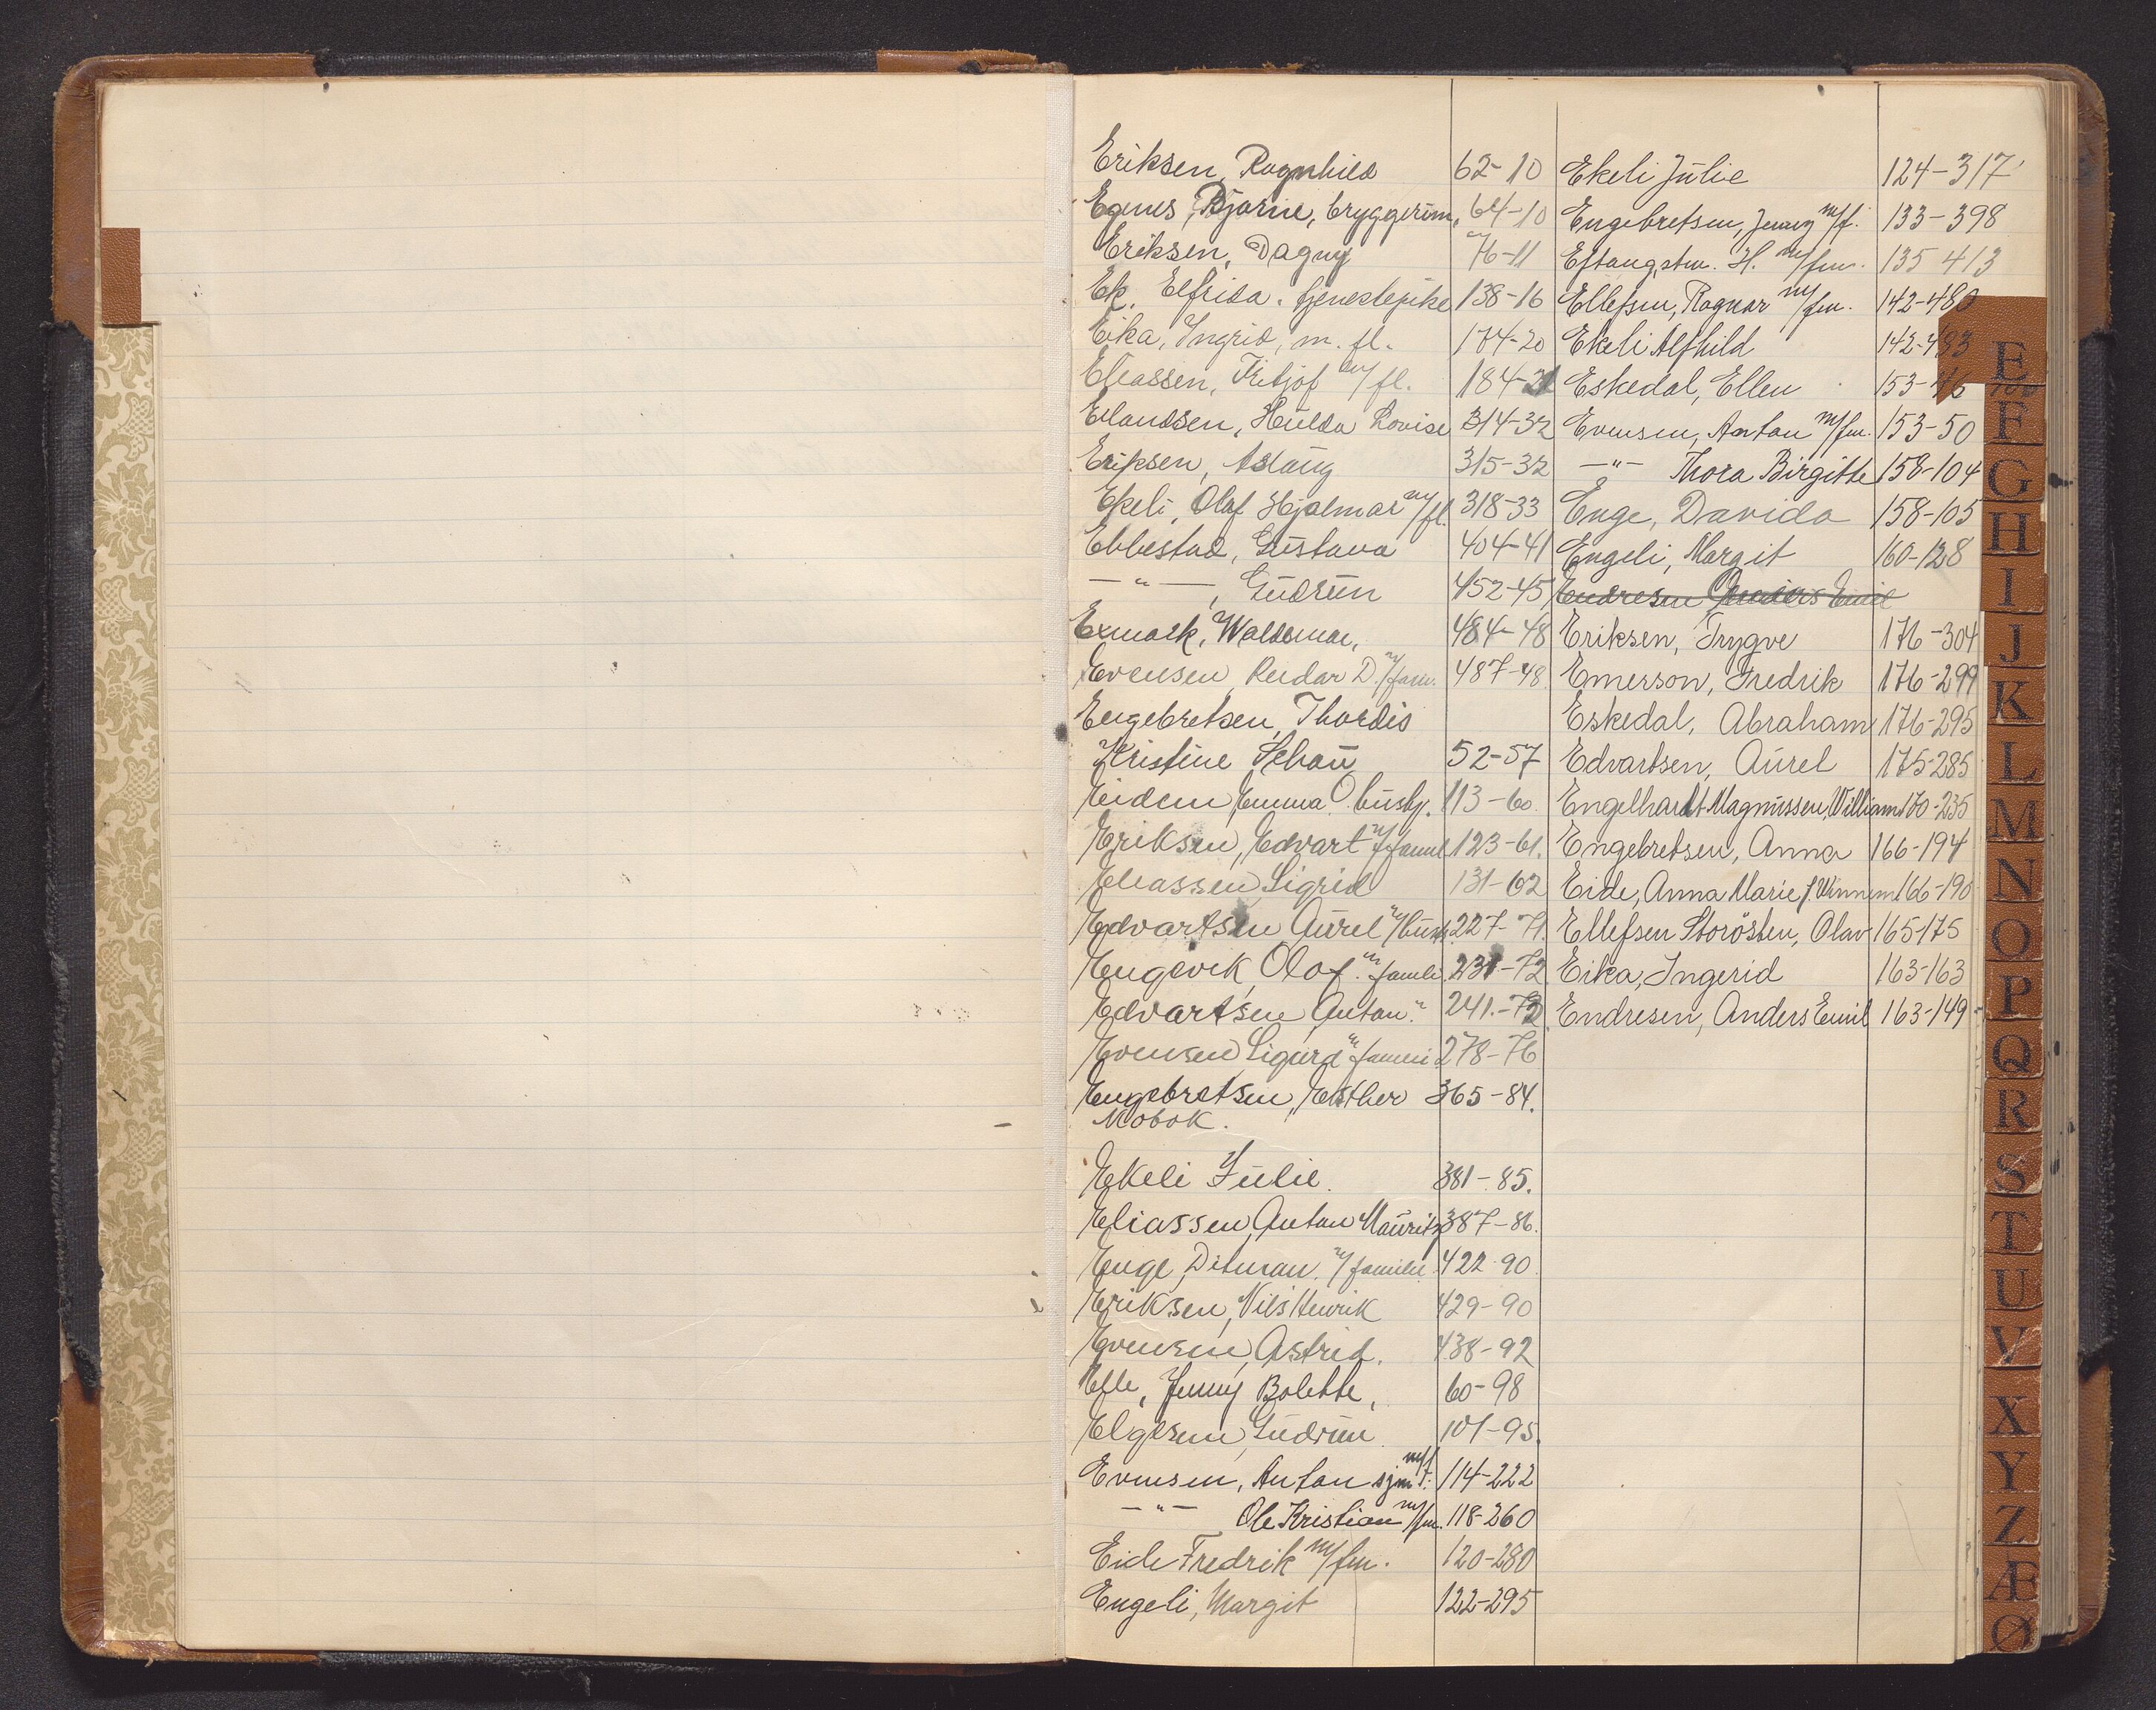 Eriksen, Ragnhild 62-10
Egnes, Bjarne, bryggerim. 64-10
Eriksen, Dagny 76-11
Ek, Elfrida. tjenestepike 138-16
Eika, Ingrid, m. fl. 174-20
Eliassen, Fritjof m/fl. 184-21
Erlandsen, Hulda Lovise 314-32
Eriksen, Aslaug 315-32
Ekeli, Olaf Hjalmar m/fl. 318-33
Ebbestad, Gustava 404-41
—"—, Gudrun 452-45
Exmark, Waldemar, 484-48
Evensen Reidar D. m/fam. 487-48.
Engebretsen, Thordis
Kristine Schau 52-57
Eidem, Emma O. husbg. 113-60.
Eriksen, Edvart m/famil 123-61.
Eliassen, Sigrid 131-62
Edvartsen Aurel m/hust. 227-71.
Engevik, Olaf. m familie 231-72
Edvartsen, Anton." 241.-73
Evensen, Sigurd m familie 278-76
Engebretsen, Esther 365-84.
Mobok.
Ekeli Julie. 381-85.
Eliassen, Anton Mauritz 387-86.
Enge, Ditman. m/familie 422-90.
Eriksen, Nils Henrik 429-90
Evensen, Astrid. 438-92
Elle, Jenny Bolette, 60-98
Elgesem, Gudrun 101-95.
Evensen, Anton sjm. m/f. 114-222
—"— Ole Kristian m/fm. 118-260
Eide Fredrik m/fm. 120-280
Engeli, Margit 122-295
Ekeli Julie 124-317
Engebretsen, Jenny m/f. 133-398
Eftang, stm. H. m/fm. 135 413
Ellefsen, Ragnar m/fm. 142-480
Ekeli Alfhild 142-483
Eskedal, Ellen 153-46
Evensen, Anton m/fm. 153-50
—"— Thora Birgitte 158-104
Enge, Davida 158-105
Engeli, Margit 160-128
Endresen Anders Emil
Eriksen, Trygve 176-304
Emerson, Fredrik 176-299
Eskedal, Abraham 176-295
Edvartsen, Aurel 175-285
Engelhardt Magnussen, William 170-235
Engebretsen, Anna 166-194
Eide, Anna Marie f. Winnem 166-190
Ellefsen Storösten, Olav 165-175
Eika, Ingerid 163-163
Endresen, Anders Emil 163-149
E
F
G
H
I
J
K
L
M
N
O
P
Q
R
S
T
U
V
X
Y
Z
Æ
Ø